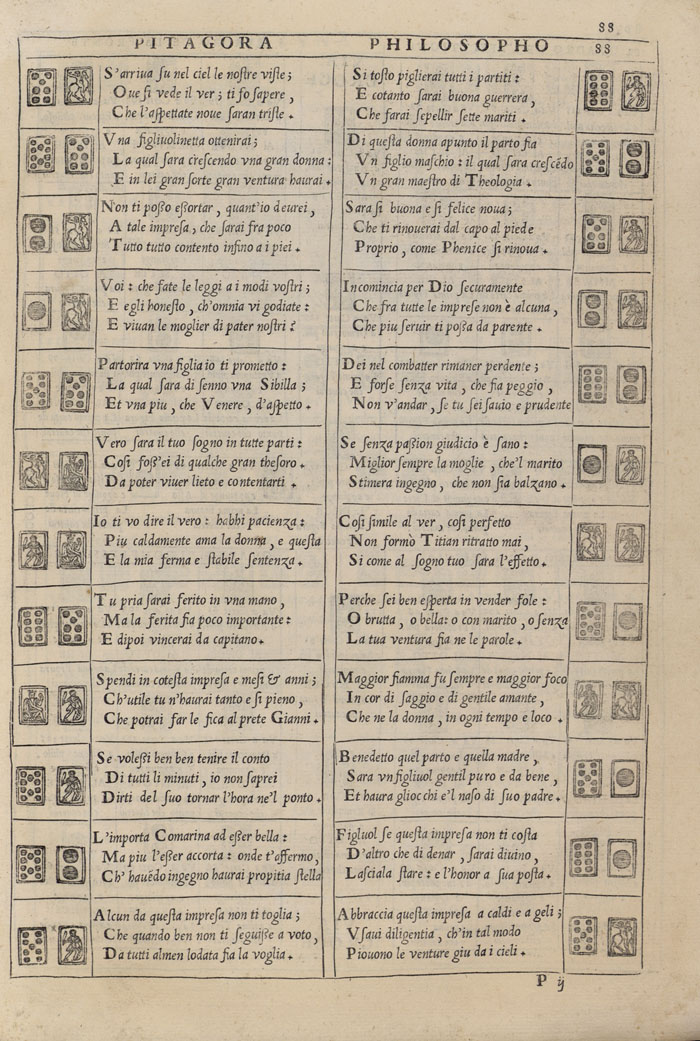 88
PITAGORA PHILOSOPHO 88
S'arriua su nel ciel le nostre viste;
Oue si vede il ver; ti fo sapere,
Che l'aspettate noue saran triste.
Vna figliuolinetta ottenirai;
La qual sara crescendo vna gran donna:
E in lei gran sorte gran ventura haurai.
Non ti posso essortar, quant'io deurei,
A tale impresa; che sarai fra poco
Tutto tutto contento infino a i piei.
Voi: che fate le leggi a i modi vostri;
E egli honesto, ch'omnia vi godiate:
E viuan le moglier di pater nostri?
Partorira vna figlia io ti prometto:
La qual sara di senno vna Sibilla;
Et vna piu, che Venere, d'aspetto.
Vero sara il tuo sogno in tutte parti:
Cosi foss'ei di qualche gran thesoro.
Da poter viuer lieto e contentarti.
Io ti vo dire il vero: habbi pacienza:
Piu caldamente ama la donna, e questa
E la mia ferma e stabile sentenza.
Tu pria sarai ferito in vna mano,
Ma la ferita fia poco importante:
E dipoi vincerai da capitano.
Spendi in cotesta impresa e mesi & anni;
Ch'utile tu n'haurai tanto e si pieno,
Che potrai far le fica al prete Gianni.
Se volessi ben ben tenire il conto
Di tutti li minuti, io non saprei
Dirti del suo tornar l'hora ne'l ponto.
L'importa Comarina ad esser bella:
Ma piu l'esser accorta: onde t'affermo,
Ch' hauēdo ingegno haurai propitia stella
Alcun da questa impresa non ti toglia;
Che quando ben non ti seguisse a voto,
Da tutti almen lodata fia la voglia.
Si tosto piglierai tutti i partiti:
E cotanto sarai buona guerrera,
Che farai sepellir sette mariti.
Di questa donna apunto il parto fia
Vn figlio maschio: il qual sara crescēdo
Vn gran maestro di Theologia.
Sara si buona e si felice noua;
Che ti rinouerai dal capo al piede
Proprio, come Phenice si rinoua.
Incomincia per Dio securamente
Che fra tutte le imprese non è alcuna,
Che piu seruir ti possa da parente.
Dei nel combatter rimaner perdente;
E forse senza vita, che fia peggio,
Non v'andar, se tu sei sauio e prudente
Se senza passion giudicio è sano:
Miglior sempre la moglie, che'l marito
Stimera ingegno, che non sia balzano.
Cosi simile al ver, cosi perfetto
Non formò Titian ritratto mai,
Si come al sogno tuo sara l'effetto.
Perche sei ben esperta in vender fole:
O brutta, o bella: o con marito, o senza
La tua ventura fia ne le parole.
Maggior fiamma fu sempre e maggior foco
In cor di saggio e di gentile amante,
Che ne la donna, in ogni tempo e loco.
Benedetto quel parto e quella madre,
Sara vn figliuol gentil puro e da bene,
Et haura gliocchi e'l naso di suo padre.
Figluol se questa impresa non ti costa
D'altro che di denar, sarai diuino,
Lasciala stare: e l'honor a sua posta.
Abbraccia questa impresa a caldi e a geli;
Vsaui diligentia, ch'in tal modo
Piouono le venture giu da i cieli.
P ij